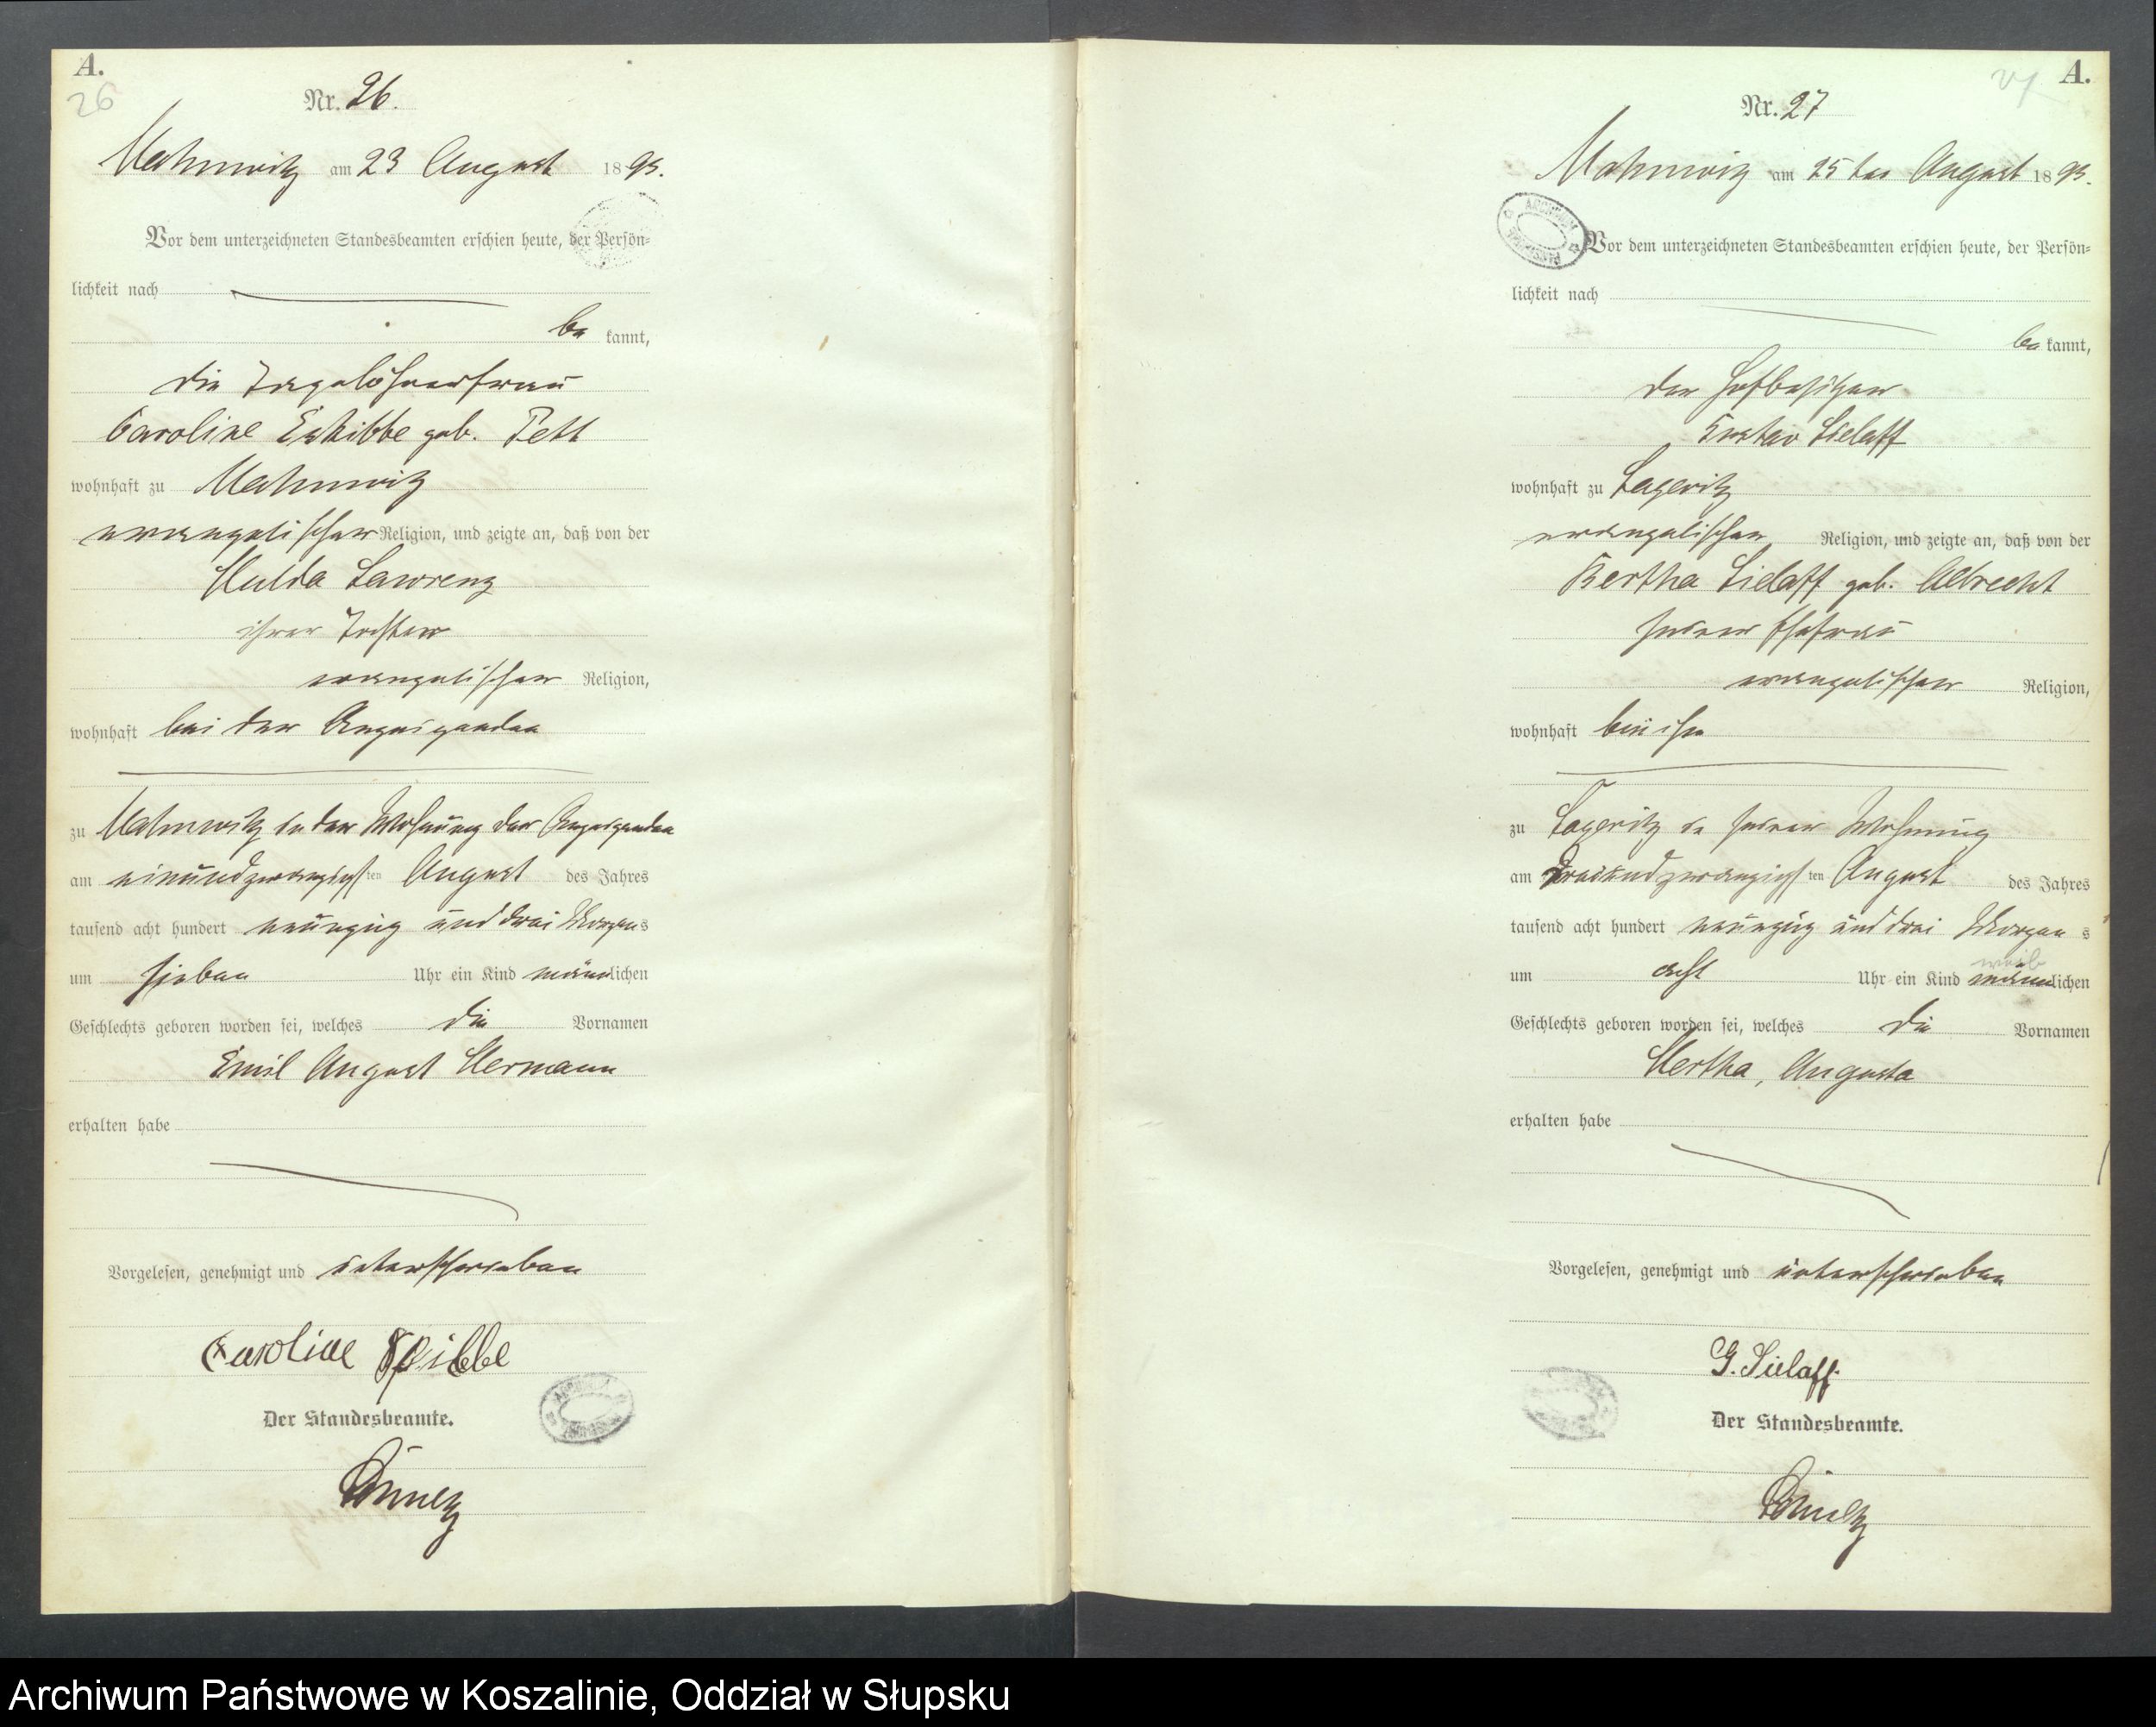 A.
26
Nr. 26.
Mahnwitz am 23 August 1893.
Vor dem unterzeichneten Standesbeamten erschien heute, der Persön=
lichkeit nach
be kannt,
die Tagelöhnerfrau
Caroline gab. Pett
wohnhaft zu Mahnwitz
evangelischer Religion, und zeigte an, daß von der
Hulda Lawrenz
ihrer Tochter
evangelischer Religion,
wohnhaft bei der Anzeigenden
zu Mahnwitz in der Wohnung der Anzeigenden
am einundzwanzigsten August des Jahres
tausend acht hundert neunzig und drei Morgens
um sieben Uhr ein Kind männlichen
Geschlechts geboren worden sei, welches die Vornamen
Emil August Hermann
erhalten habe
Vorgelesen, genehmigt und unterschrieben
Caroline
Der Standesbeamte.
A.
27
Nr. 27
Mahnwitz am 25ten August 1893.
ARCHIWUM
Vor dem unterzeichneten Standesbeamten erschien heute, der Persön=
lichkeit nach
be kannt,
der Hofbesitzer
Gustav Sielaff
wohnhaft zu
evangelischer Religion, und zeigte an, daß von der
Bertha Sielaff geb. Albrecht
seiner Ehefrau
evangelischer Religion,
wohnhaft bei ihm
zu in seiner Wohnung
am dreiundzwanzigsten August des Jahres
tausend acht hundert neunzig und drei Morgens
weib
um acht Uhr ein Kind männlichen
Geschlechts geboren worden sei, welches die Vornamen
Hertha, Augusta
erhalten habe
Vorgelesen, genehmigt und unterschrieben
G. Sielaff.
Der Standesbeamte.
Archiwum Państwowe w Koszalinie, Oddział w Słupsku